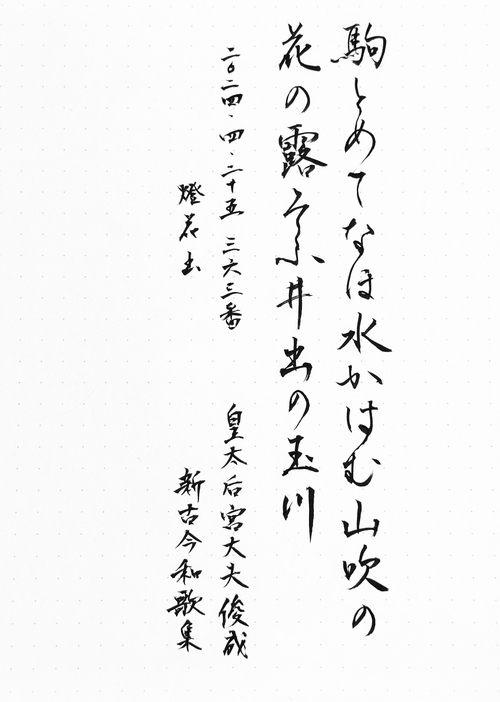 駒とめてなほ水かはむ山吹の
花の露そふ井出の玉川
二〇二四.四.二十五 三六三番
皇太后宮大夫俊成
燈花出
新古今和歌集